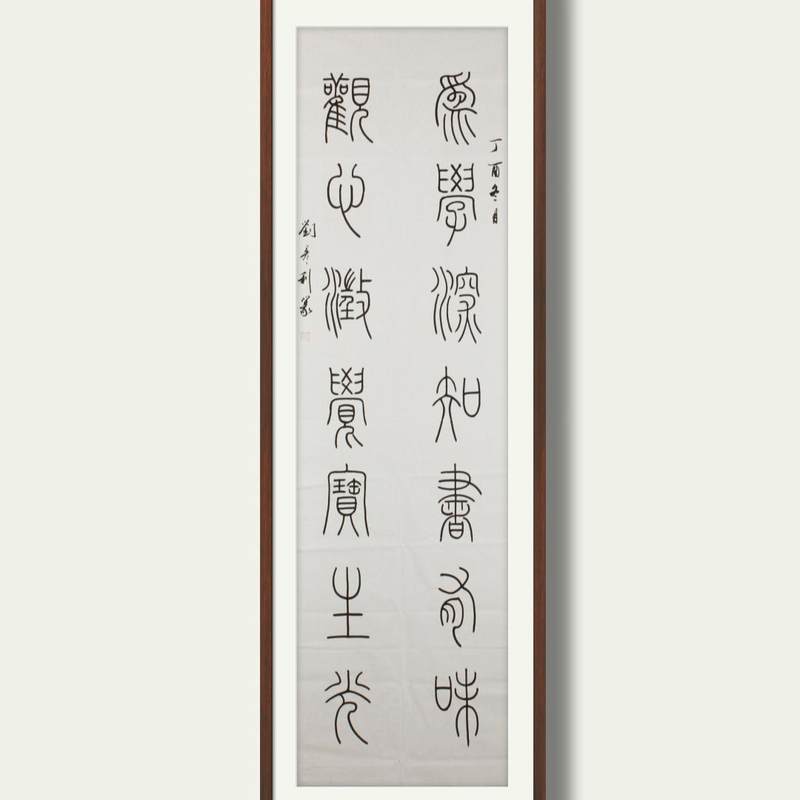 丁酉冬月
為學深知書有味
觀心澂覺寶生光
劉利篆